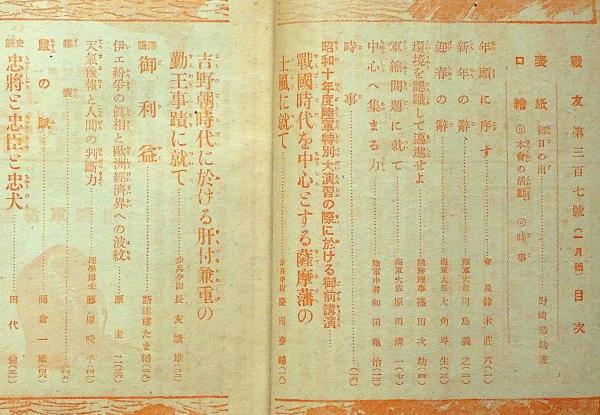 戰友第三百七號（一月號）目次
表紙 初日の出
口繪 ◎本會の活動 ◎時事
年頭に序す 會長 鈴木莊六（一）
新年の辭 陸軍大臣 川島義之（二）
迎春の辭 海軍大臣 大角岑生（三）
環境を認識して邁進せよ
軍縮問題に就て 海軍大佐 原田清一（七）
中心へ集まる力 陸軍中將 和田龜治（三）
時事
昭和十年度陸軍特別大演習の際に於ける御前講演
戰國時代を中心とする薩摩藩の
士風に就て
吉野朝時代に於ける肝付兼重の
勤王事蹟に就て 步兵少尉 長友繁雄
落語 御利益
伊エ紛爭の眞相と歐洲經濟界への波紋 原圭二
天氣豫報と人間の判斷力 理學博士 藤原咲平
雜叢
鼠の賦
史談 忠將と忠臣と忠犬